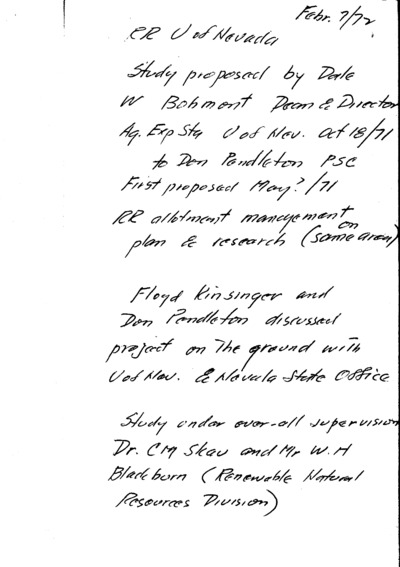 Febr. 7/72
RR U of Nevada
Study proposed by Dale
W Bohmont Dean & Director
Ag. Exp Sta U of Nev. Oct 18/71
to Don Pendleton PSC
First proposed May?/71
RR allotment management
plan & research (same area)
on
Floyd Kinsinger and
Don Pendleton discussed
project on the ground with
U of Nev. & Nevada State Office
Study under over-all supervision
Dr. CM Skau and Mr W.H
Blackburn (Renewable Natural
Resources Division)